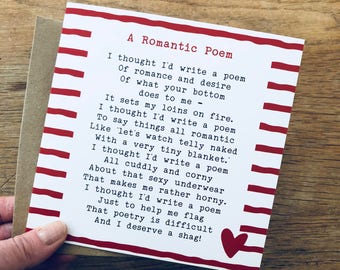 A Romantic Poem
I thought I'd write a poem
Of romance and desire
Of what your bottom
does to me -
It sets my loins on fire.
I thought I'd write a poem
To say things all romantic
Like 'let's watch telly naked
With a very tiny blanket.'
I thought I'd write a poem
All cuddly and corny
About that sexy underwear
That makes me rather horny.
I thought I'd write a poem
Just to help me flag
That poetry is difficult
And I deserve a shag!